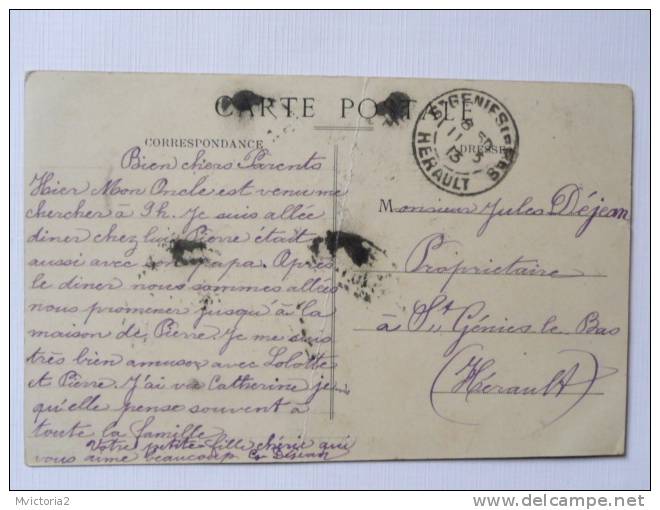 CARTE POSTALE
CORRESPONDANCE
Bien chers Parents
Hier Mon Oncle est venu me
chercher à 9h. Je suis allée
diner chez lui Pierre était
aussi avec son papa. Après
le diner nous sommes allés
nous promener jusqu'à la
maison de Pierre. Je me suis
très bien amusée avec Lolotte
et Pierre. J'ai vu Catherine je
qu'elle pense souvent à
toute la famille
Votre petite fille chérie qui
vous aime beaucoup Déjean
ADRESSE
Monsieur Jules Déjean
Propriétaire
à St Génies le Bas
(Hérault)
ST GENIES LE BAS
11 3
13
HERAULT
Mvictoria2
www.delcampe.net